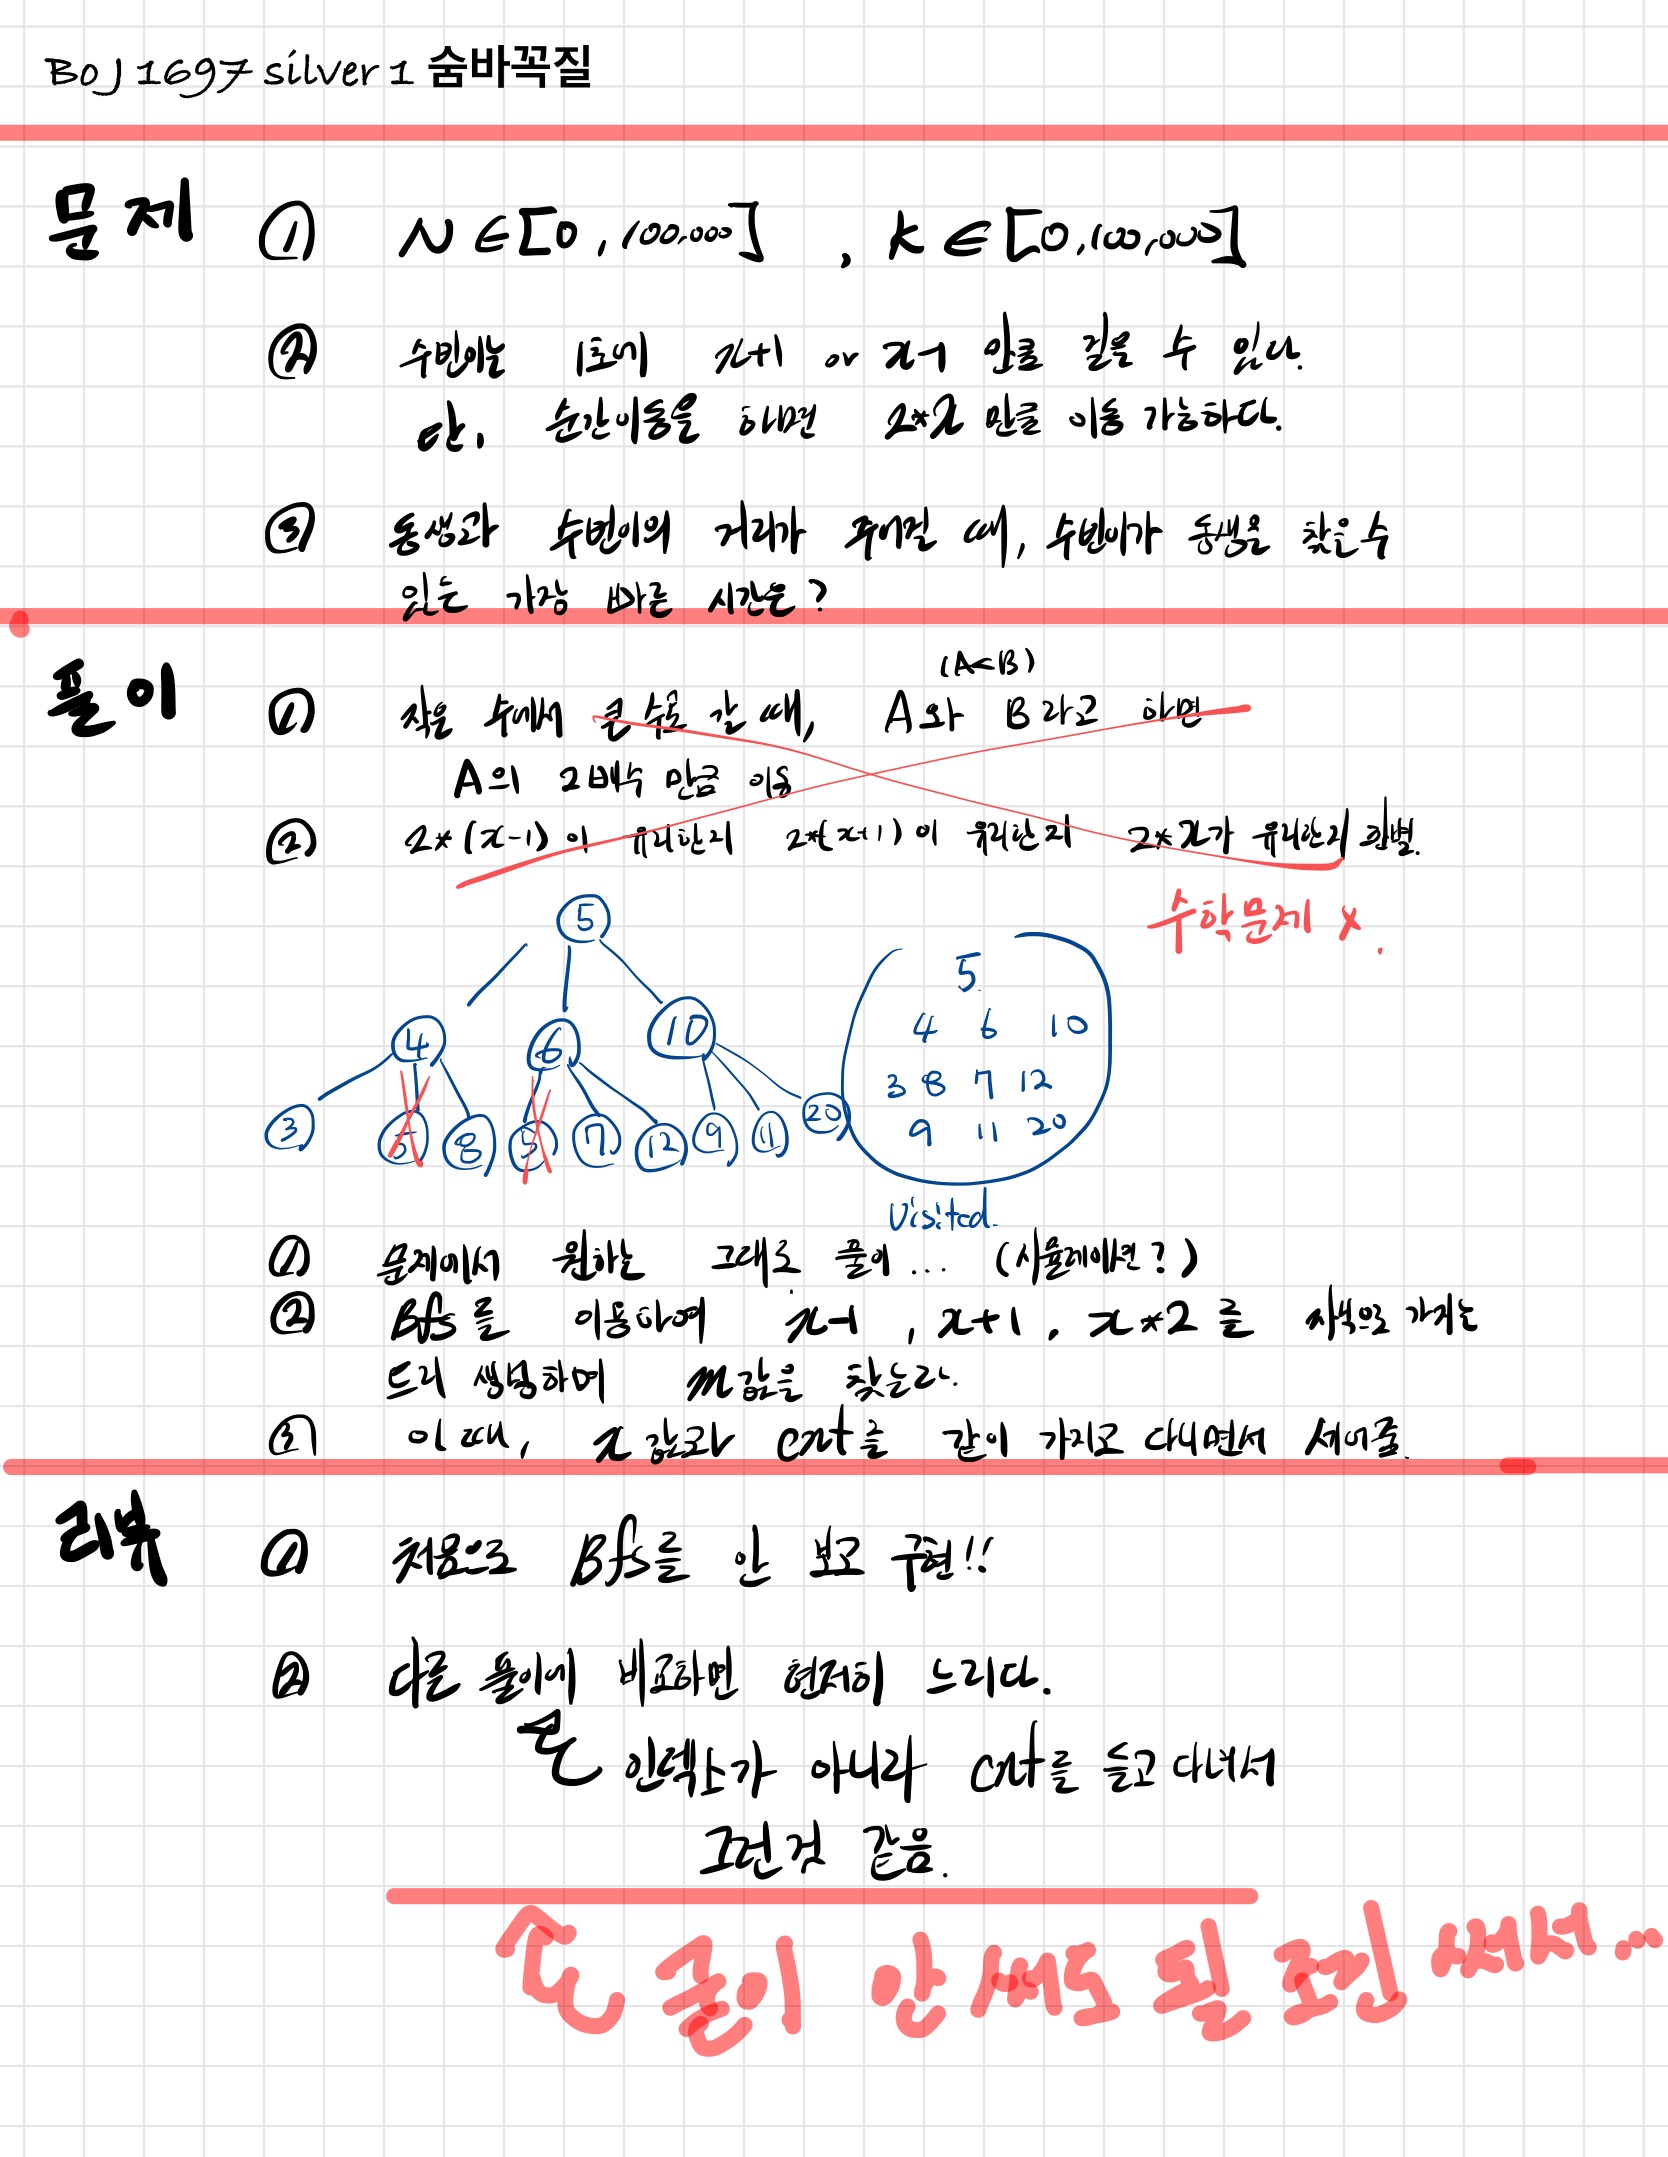 BOJ 1697 silver 1 숨바꼭질
문제 ① N ∈ [0, 100,000] , K ∈ [0, 100,000]
② 수빈이는 1초에 x+1 or x-1 만큼 걸을 수 있다.
단, 순간이동을 하면 2*x 만큼 이동 가능하다.
③ 동생과 수빈이의 거리가 주어질 때, 수빈이가 동생을 찾을 수
있는 가장 빠른 시간은?
(A<B)
풀이 ① 작은 수에서 큰 수로 갈 때, A와 B라고 하면
A의 2배수 만큼 이동
② 2*(x-1)이 유리한지 2*(x+1)이 유리한지 2*x가 유리한지 판별.
수학문제 x.
5
4 6 10
3 5 8 5 7 12 9 11 20
5
4 6 10
3 8 7 12
9 11 20
Visited.
① 문제에서 원하는 그대로 풀이... (시뮬레이션?)
② Bfs를 이용하여 x-1, x+1, x*2를 자식으로 가지는
트리 생성하며 m값을 찾는다.
③ 이 때, x값과 cnt를 같이 가지고 다니면서 세어줌.
리뷰 ① 처음으로 Bfs를 안 보고 구현!!
② 다른 풀이에 비교하면 현저히 느리다.
인덱스가 아니라 cnt를 들고 다녀서
그런것 같음.
굳이 안 써도 될 조건 써서...